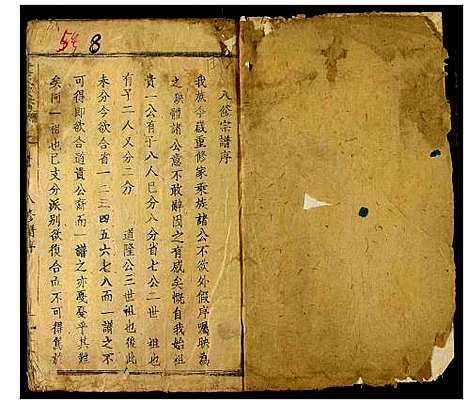 8
八修宗譜序
我族今歲重修家乘族諸公不欲外假序囑映為
之映體諸公意不敢辭因之有感矣慨自我始祖
貴一公有子八人已分八分省七公二世 祖也
有子二人又分二分 道隆公三世祖也後此
未分今欲合省一二三四五六七八而一譜之不
可得即欲合道貴公裔而一譜之亦戛戛乎其難
矣同一祖也已支分派別欲復合而不可得焉於
八修譜序